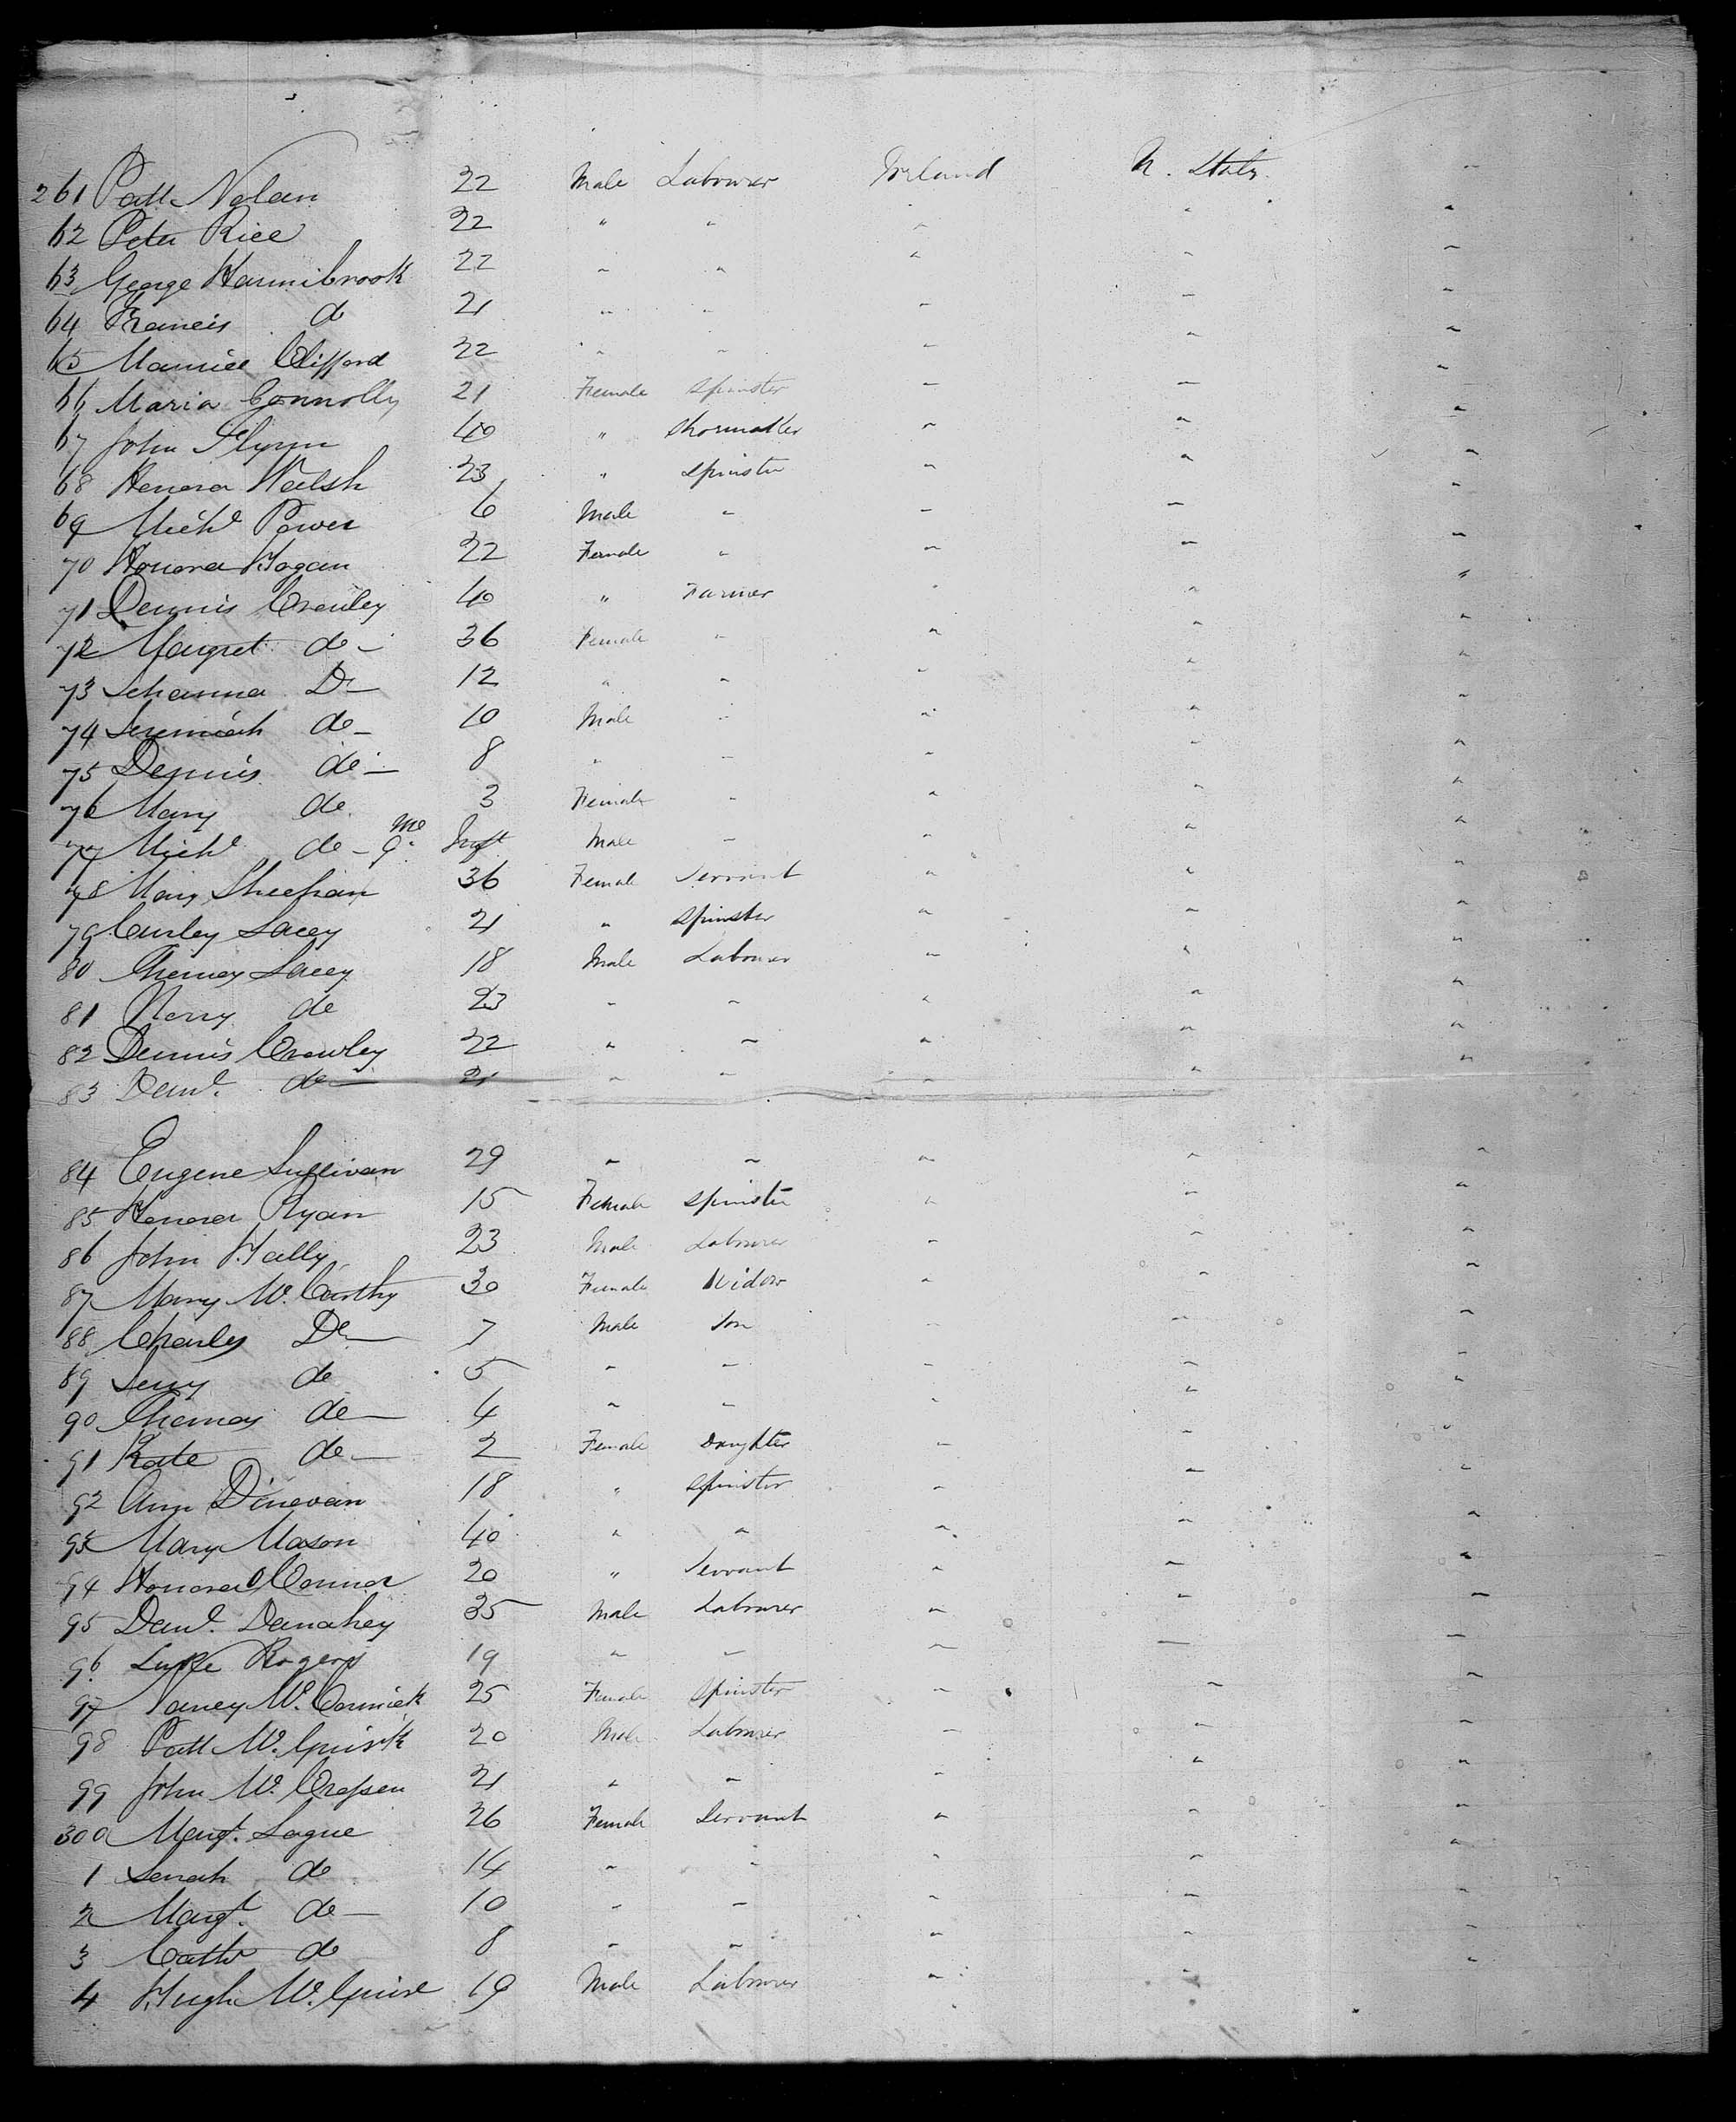 261 Patt Nolan 22 Male Labourer Ireland U. States "
62 Peter Rice 22 " " " " "
63 George Hannibrook 22 " " " " "
64 Francis do 21 " " " " "
65 Maurice Clifford 22 " " " " "
66 Maria Connolly 21 Female Spinster " " "
67 John Flynn 40 " Shoemaker " " "
68 Henora Walsh 23 " Spinster " " "
69 Michl Power 6 Male " " " "
70 Honora Hogan 22 Female " " " "
71 Dennis Crowley 40 " Farmer " " "
72 Margret do 36 Female " " " "
73 Johanna Do 12 " " " " "
74 Jeremiah do 10 Male " " " "
75 Dennis do 8 " " " " "
76 Mary do 3 Female " " " "
77 Michl do 9 mo Inft Male " " " "
78 Mary Sheehan 36 Female Servant " " "
79 Curley Lacey 21 " Spinster " " "
80 Thomas Lacey 18 Male Labourer " " "
81 do 23 " " " " "
82 Dennis Crowley 22 " " " " "
83 Danl. do 21 " " " " "
84 Eugene Sullivan 29 " " " " "
85 Henora Ryan 15 Female Spinster " " "
86 John Hally 23 Male Labourer " " "
87 Mary McCarthy 30 Female Widow " " "
88 Charles Do 7 Male Son " " "
89 Jerry do 5 " " " " "
90 Thomas do 4 " " " " "
91 Kate do 2 Female Daughter " " "
92 Ann Dinevan 18 " Spinster " " "
93 Mary Mason 40 " " " " "
94 Honora OConnor 20 " Servant " " "
95 Danl. Danahey 35 Male Labourer " " "
96 Luke Rogers 19 " " " " "
97 Nancy McCormick 25 Female Spinster " " "
98 Patt McGuirk 20 Male Labourer " " "
99 John McCrossen 21 " " " " "
300 Margt. Logue 26 Female Servant " " "
1 do 14 " " " " "
2 Margt. do 10 " " " " "
3 Cathr do 8 " " " " "
4 Hugh McGuire 19 Male Labourer " " "